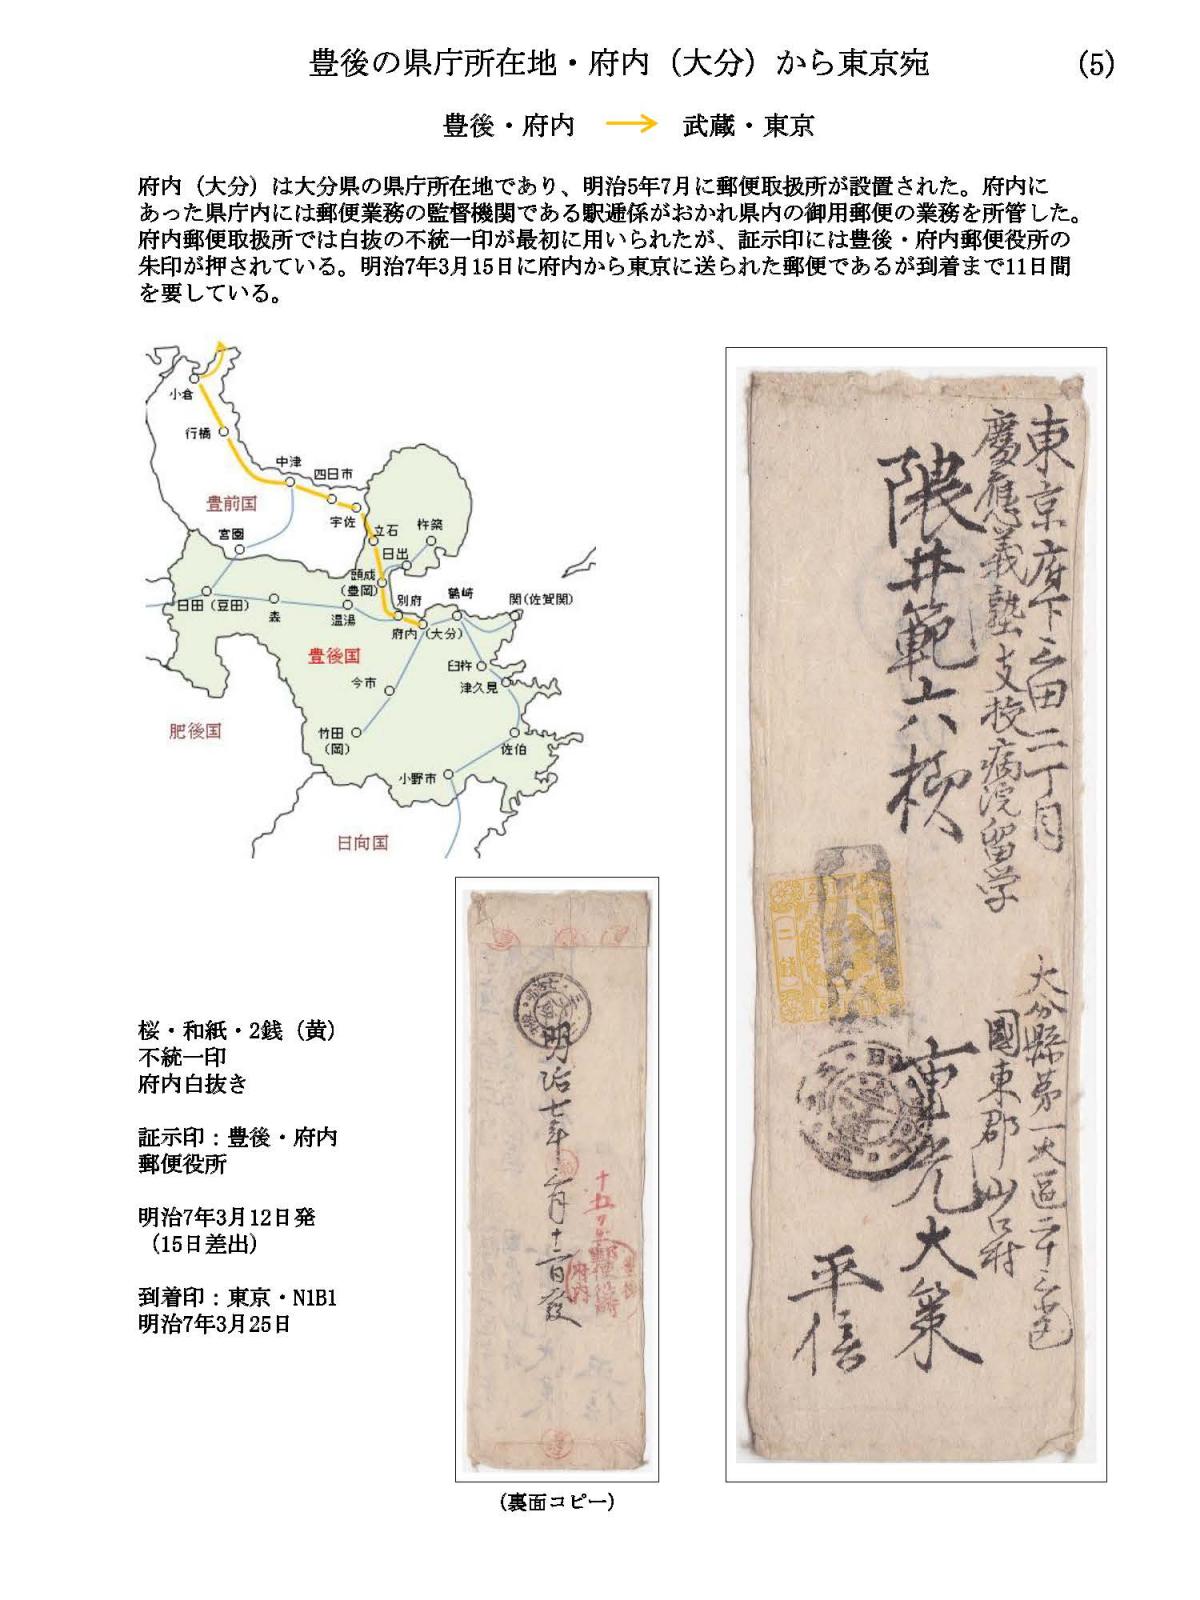 豊後の県庁所在地・府内（大分）から東京宛
(5)
豊後・府内 → 武蔵・東京
府内（大分）は大分県の県庁所在地であり、明治5年7月に郵便取扱所が設置された。府内に
あった県庁内には郵便業務の監督機関である駅逓係がおかれ県内の御用郵便の業務を所管した。
府内郵便取扱所では白抜の不統一印が最初に用いられたが、証示印には豊後・府内郵便役所の
朱印が押されている。明治7年3月15日に府内から東京に送られた郵便であるが到着まで11日間
を要している。
小倉
行橋
中津
四日市
豊前国
宇佐
宮園
立石
杵築
日出
頭成
（豊岡）
日田（豆田）
森
温湯
別府
鶴崎
関(佐賀関)
府内（大分）
豊後国
臼杵
今市
津久見
肥後国
竹田
（岡）
佐伯
小野市
日向国
東京府下三田二丁目
慶應義塾支校病院留学
隈井範六様
大分縣第一大區二十三小區
國東郡山口村
重光大策
平信
二銭
桜・和紙・2銭（黄）
不統一印
府内白抜き
証示印：豊後・府内
郵便役所
明治7年3月12日発
（15日差出）
到着印：東京・N1B1
明治7年3月25日
明治七年三月十二日發
郵便役所
府内
（裏面コピー）